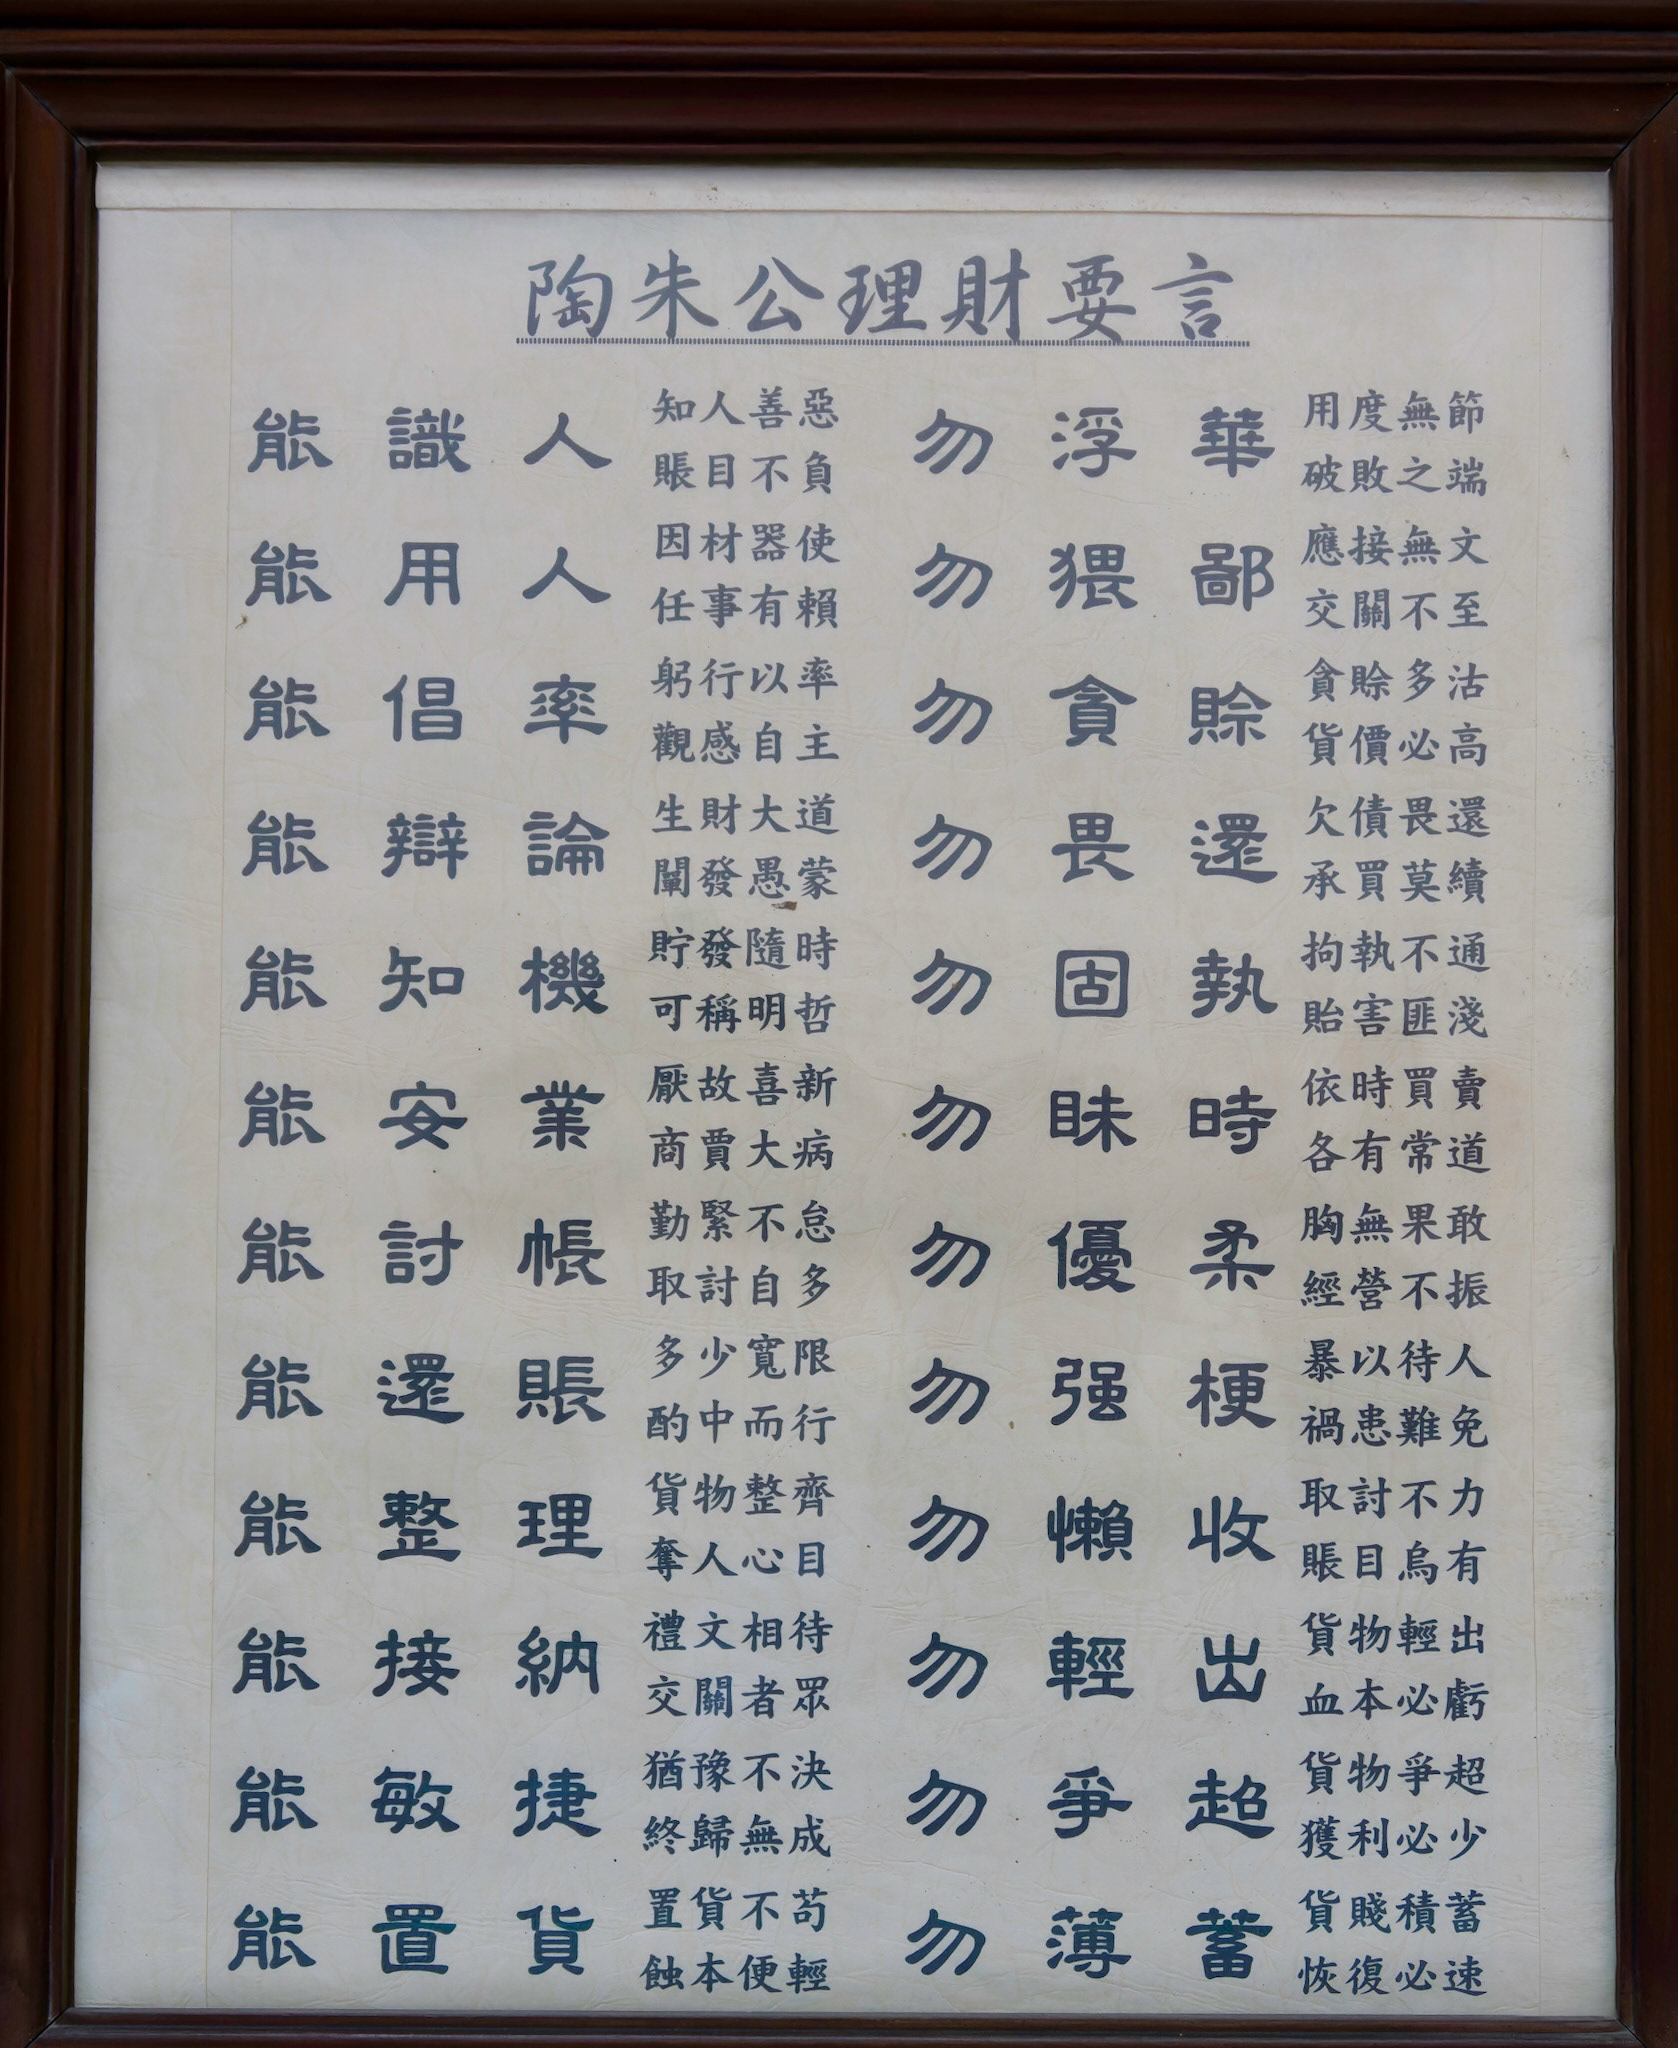 陶朱公理財要言
能識人 知人善惡 賬目不負
能用人 因材器使 任事有賴
能倡率 躬行以率 觀感自主
能辯論 生財大道 闡發愚蒙
能知機 貯發隨時 可稱明哲
能安業 厭故喜新 商賈大病
能討帳 勤緊不怠 取討自多
能還賬 多少寬限 酌中而行
能整理 貨物整齊 奪人心目
能接納 禮文相待 交關者眾
能敏捷 猶豫不決 終歸無成
能置貨 置貨不苟 蝕本便輕
勿浮華 用度無節 破敗之端
勿猥鄙 應接無文 交關不至
勿貪賒 貪賒多沽 貨價必高
勿畏還 欠債畏還 承買莫續
勿固執 拘執不通 貽害匪淺
勿眛時 依時買賣 各有常道
勿優柔 胸無果敢 經營不振
勿强梗 暴以待人 禍患難免
勿懶收 取討不力 賬目烏有
勿輕出 貨物輕出 血本必虧
勿爭超 貨物爭超 獲利必少
勿薄蓄 貨賤積蓄 恢復必速